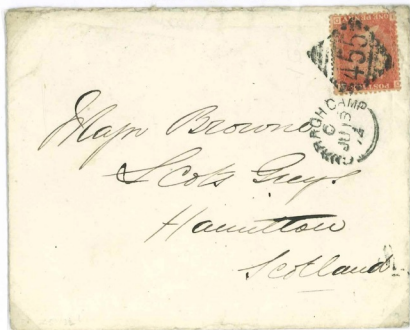 455
CURRAGH CAMP
C
JU 13
Major Browne
Scots Greys
Hamilton
Scotland